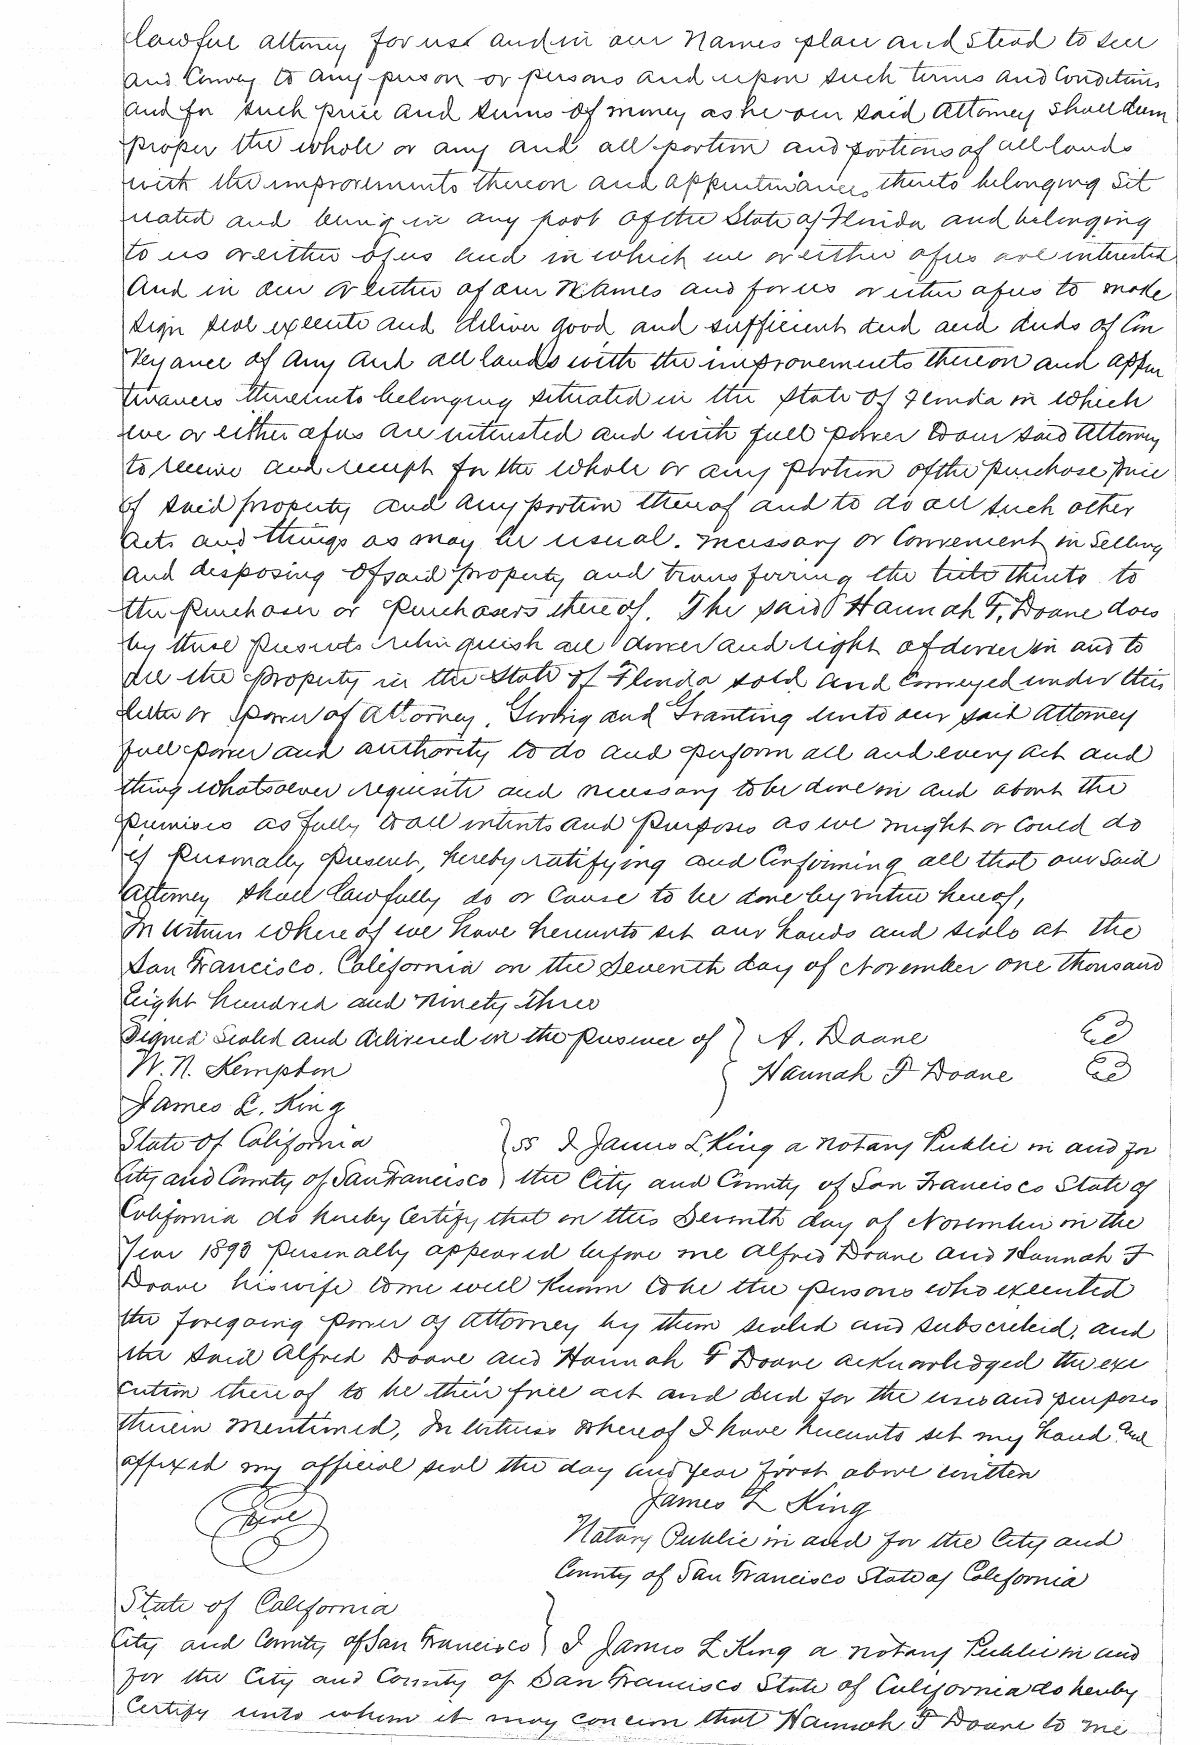 lawful attorney for us and in our Names place and stead to sell
and Convey to any person or persons and upon such terms and Conditions
and for such price and sums of money as he our said Attorney shall deem
proper the whole or any and all portion and portions of all lands
with the improvements thereon and appurtinances thereto belonging Sit
uated and being in any part of the State of Florida and belonging
to us or either of us and in which we or either of us are interested
And in our or either of our Names and for us or either of us to make
sign seal execute and deliver good and sufficient deed and deeds of Con
veyance of any and all lands with the improvements thereon and appur
tinances thereunto belonging situated in the State of Florida in which
we or either of us are interested and with full power to our said Attorney
to receive and receipt for the whole or any portion of the purchase price
of said property and any portion thereof and to do all such other
Acts and things as may be usual. necessary or Convenient in Selling
and disposing of said property and transferring the title thereto to
the purchaser or purchasers thereof. The said Hannah F. Doane does
by these presents relinquish all dower and right of dower in and to
all the property in the State of Florida sold and Conveyed under this
letter or power of Attorney. Giving and Granting unto our said Attorney
full power and authority to do and perform all and every act and
thing whatsoever requisite and necessary to be done in and about the
premises as fully to all intents and purposes as we might or could do
if personally present, hereby ratifying and Confirming all that our Said
Attorney shall lawfully do or Cause to be done by virtue hereof,
In witness where of we have hereunto set our hands and seals at the
San Francisco. California on the Seventh day of November one thousand
Eight hundred and Ninety three
Signed Sealed and delivered in the presence of } A. Doane
W. N. Kempton { Hannah F Doane
James L. King
State of California } ss I James L. King a Notary Public in and for
City and County of San Francisco } the City and County of San Francisco State of
California do hereby Certify that on this Seventh day of November in the
Year 1893 personally appeared before me Alfred Doane and Hannah F
Doane his wife to me well known to be the persons who executed
the foregoing power of Attorney by them sealed and subscribed, and
the said Alfred Doane and Hannah F Doane acknowledged the exe
cution there of to be their free act and deed for the uses and purposes
therein mentioned, In witness whereof I have hereunto set my hand and
affixed my official seal the day and year first above written
James L King
Seal
Notary Public in and for the City and
County of San Francisco State of California
State of California
City and County of San Francisco } I James L King a Notary Public in and
for the City and County of San Francisco State of California do hereby
Certify unto whom it may concern that Hannah F Doane to me